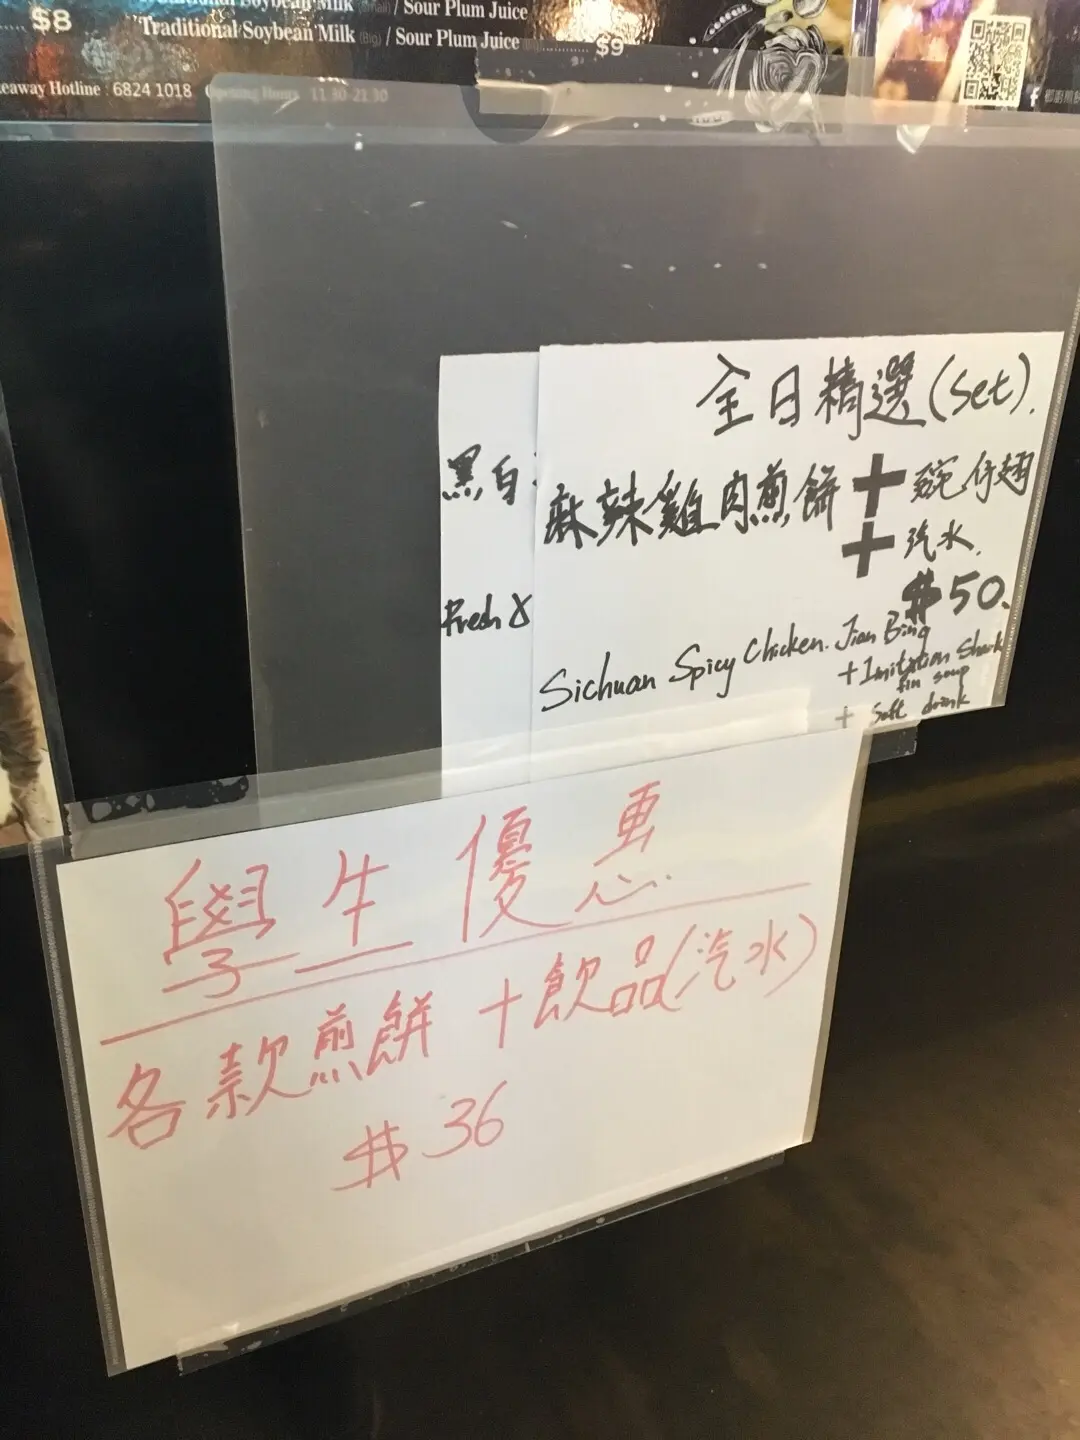 $8
/ Sour Plum Juice
Traditional Soybean Milk (Big) / Sour Plum Juice $9
eaway Hotline : 6824 1018 Opening Hours 11:30-21:30
全日精選(Set).
麻辣雞肉煎餅+碗仔翅
+汽水.
$50.
Sichuan Spicy Chicken. Jian Bing
+Imitation Shark
fin soup
+ Soft drink
黑白
Fresh &
學生優惠
各款煎餅+飲品(汽水)
$36